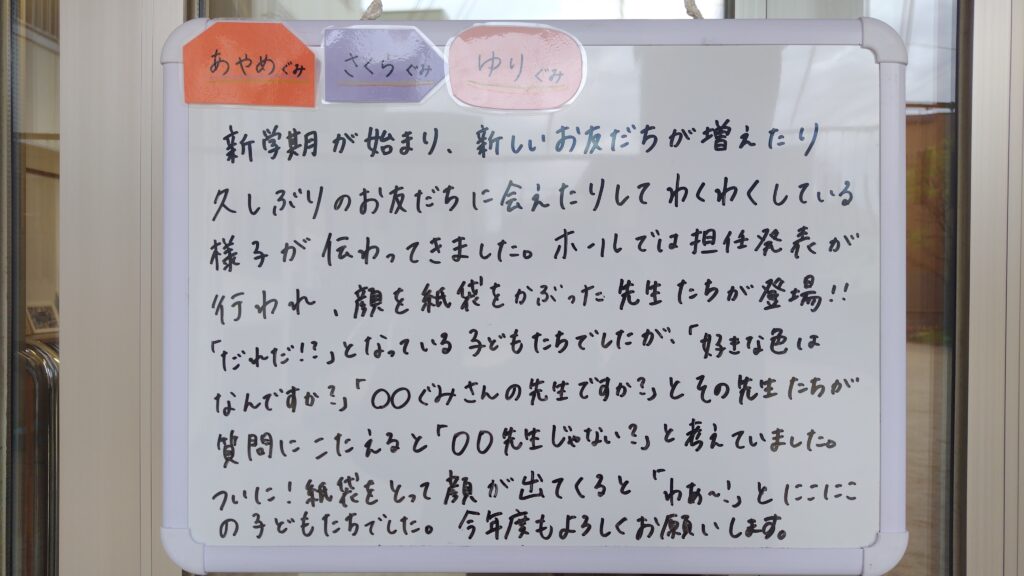 あやめぐみ さくらぐみ ゆりぐみ
新学期が始まり、新しいお友だちが増えたり
久しぶりのお友だちに会えたりしてわくわくしている
様子が伝わってきました。ホールでは担任発表が
行われ、顔を紙袋をかぶった先生たちが登場!!
「だれだ!?」となっている子どもたちでしたが、「好きな色は
なんですか?」「〇〇ぐみさんの先生ですか?」とその先生たちが
質問にこたえると「〇〇先生じゃない?」と考えていました。
ついに!紙袋をとって顔が出てくると「わぁ〜!」とにこにこ
の子どもたちでした。今年度もよろしくお願いします。